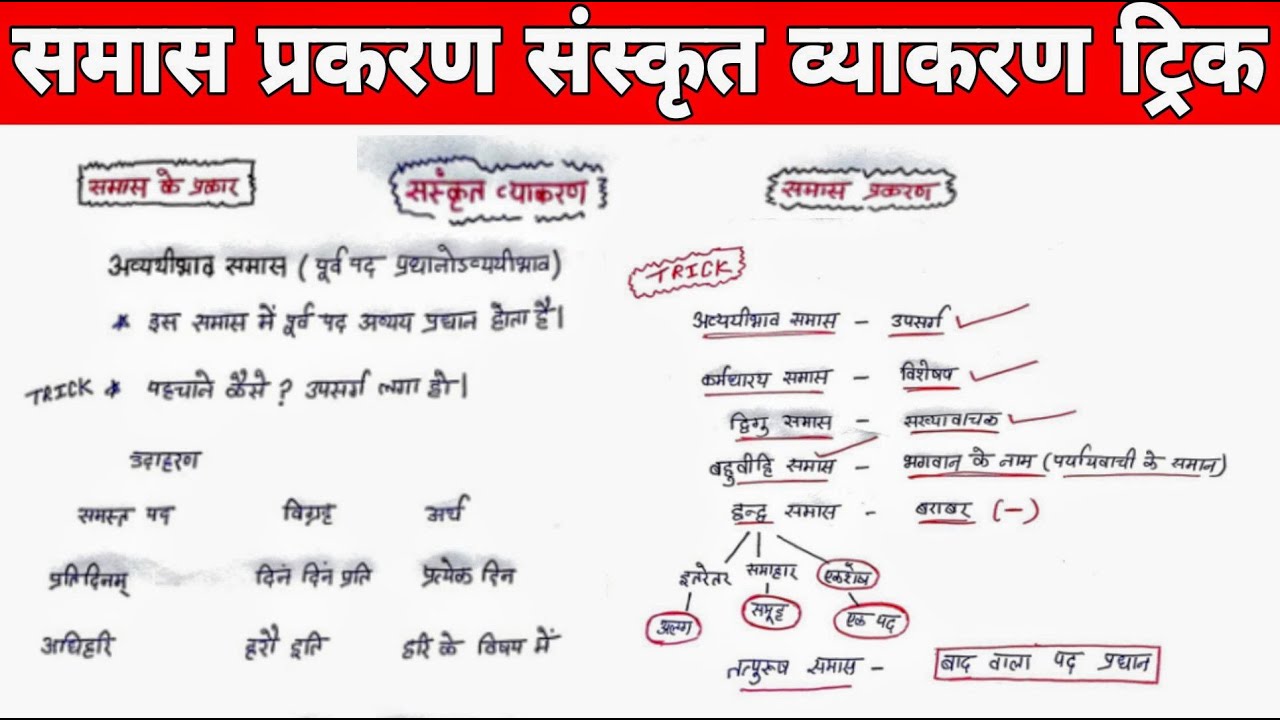 समास प्रकरण संस्कृत व्याकरण ट्रिक
समास के प्रकार
संस्कृत व्याकरण
समास प्रकरण
अव्ययीभाव समास ( पूर्व पद प्रधानोऽव्ययीभाव)
* इस समास में पूर्व पद अव्यय प्रधान होता है।
TRICK * पहचाने कैसे ? उपसर्ग लगा हो।
उदाहरण
समस्त पद विग्रह अर्थ
प्रतिदिनम् दिनं दिनं प्रति प्रत्येक दिन
अधिहरि हरौ इति हरि के विषय में
TRICK
अव्ययीभाव समास - उपसर्ग
कर्मधारय समास - विशेषण
द्विगु समास - सख्यावाचक
बहुव्रीहि समास - भगवान के नाम (पर्यायवाची के समान)
द्वन्द्व समास - बराबर (-)
इतरेतर समाहार एकशेष
अलग समूह एक पद
तत्पुरूष समास - बाद वाला पद प्रधान